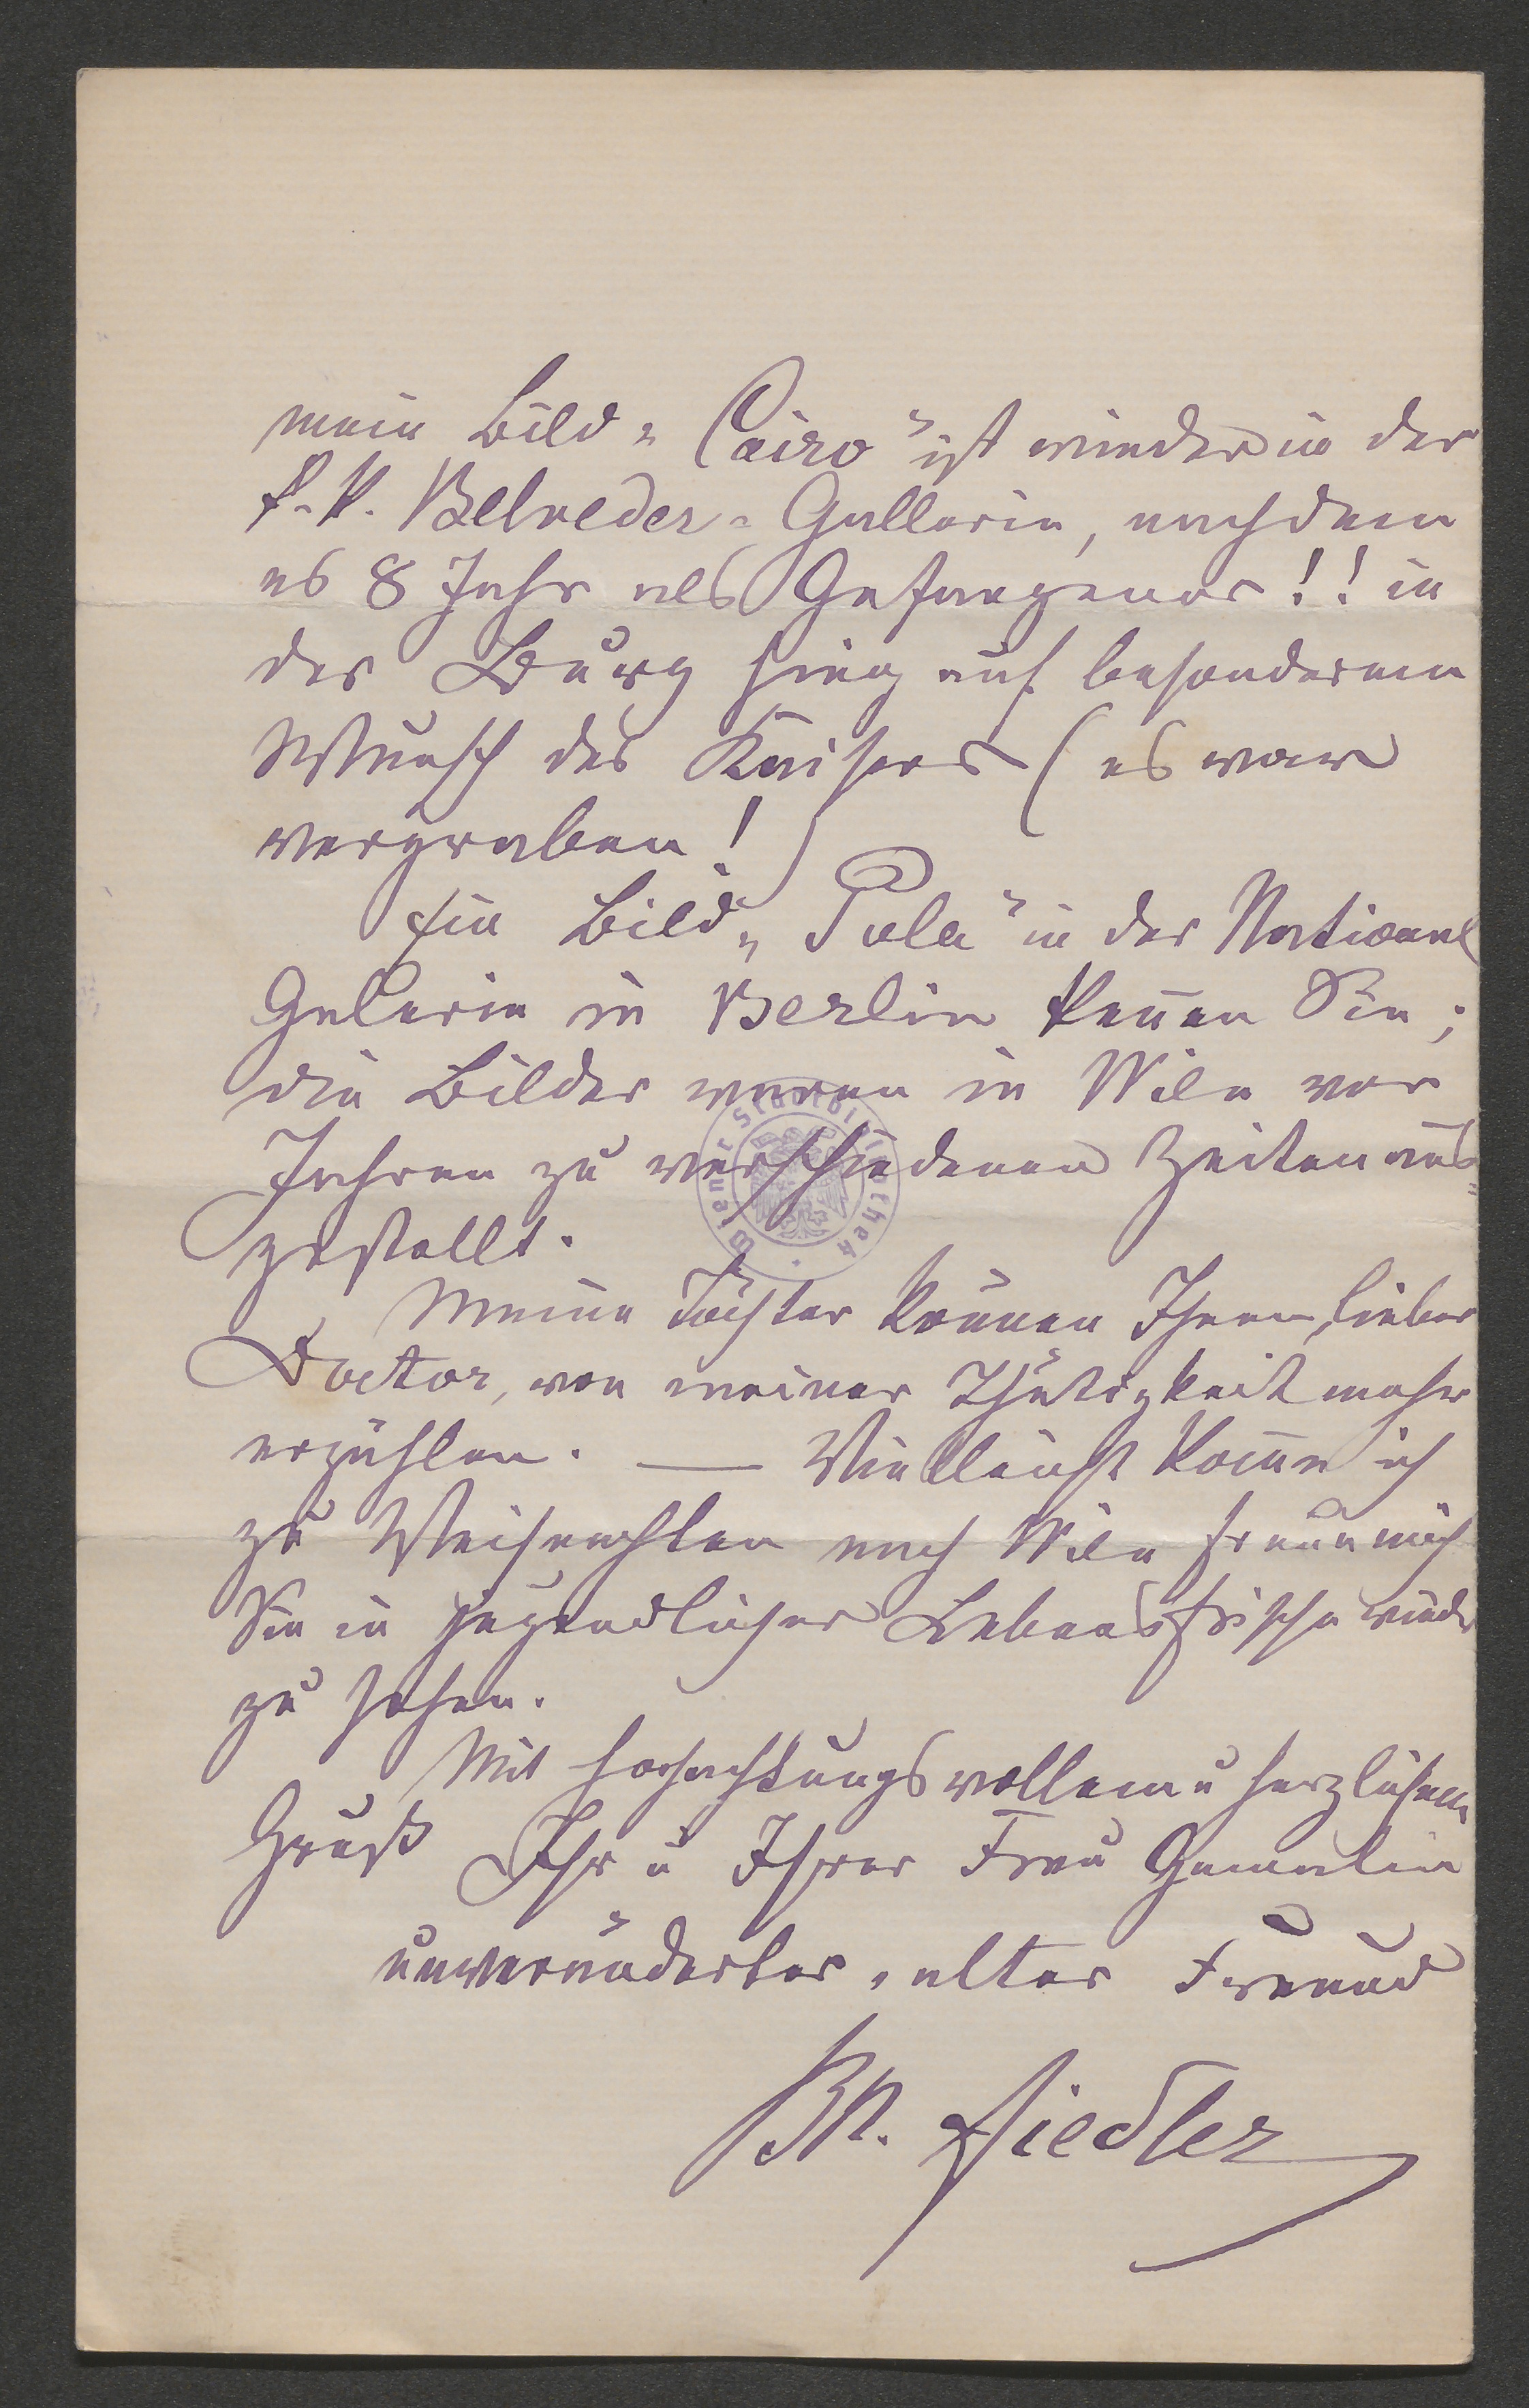 mein Bild „Cairo" ist wieder in der
k. k. Belveder-Gallerie, nachdem
es 8 Jahr als Gefangener!! in
der Burg hing auf besonderem
Wunsch des Kaisers (es war
vergraben!)
Ein Bild „Pola" in der National
Galerie in Berlin keñen Sie;
die Bilder waren in Wien vor
Jahren zu verschiedenen Zeiten aus=
gestellt.
Meine Töchter können Ihnen, lieber
Doctor, von meiner Thätigkeit mehr
erzählen. — Vielleicht kom̄e ich
zu Weihnachten nach Wien freue mich
Sie in jugendlicher Lebensfrische wieder
zu sehen.
Mit hochachtungsvollem u herzlichem
Gruß Ihr u Ihrer Frau Gemalin
unveränderter, alter Freund
Bh. Fiedler
Wiener Stadtbibliothek